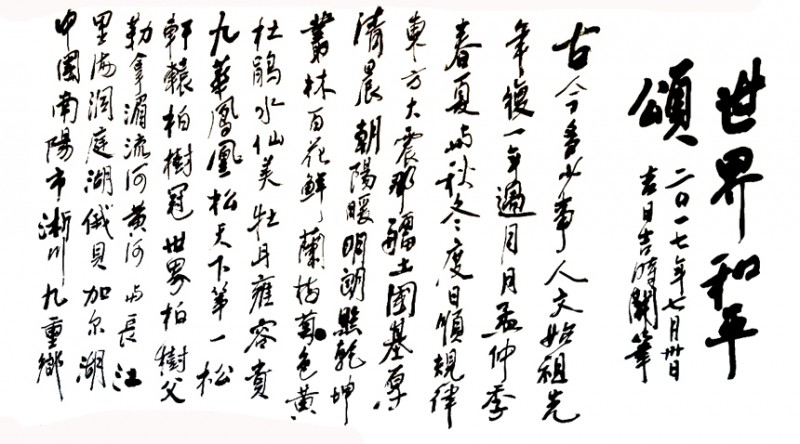 世界和平
頌
二〇一七年七月卅日
吉日吉時開筆
古今多少事人文始祖先
年復一年過月月孟仲季
春夏与秋冬度日順規律
東方大震那疆土國基厚
清晨朝陽暖明朗照乾坤
叢林百花鮮蘭梅菊色黄
杜鵑水仙美牡丹雍容貴
九華鳳凰松天下第一松
軒轅柏樹冠世界柏樹父
勒拿湄流河黄河与長江
里海洞庭湖俄貝加尔湖
中國南陽市淅川九重鄉